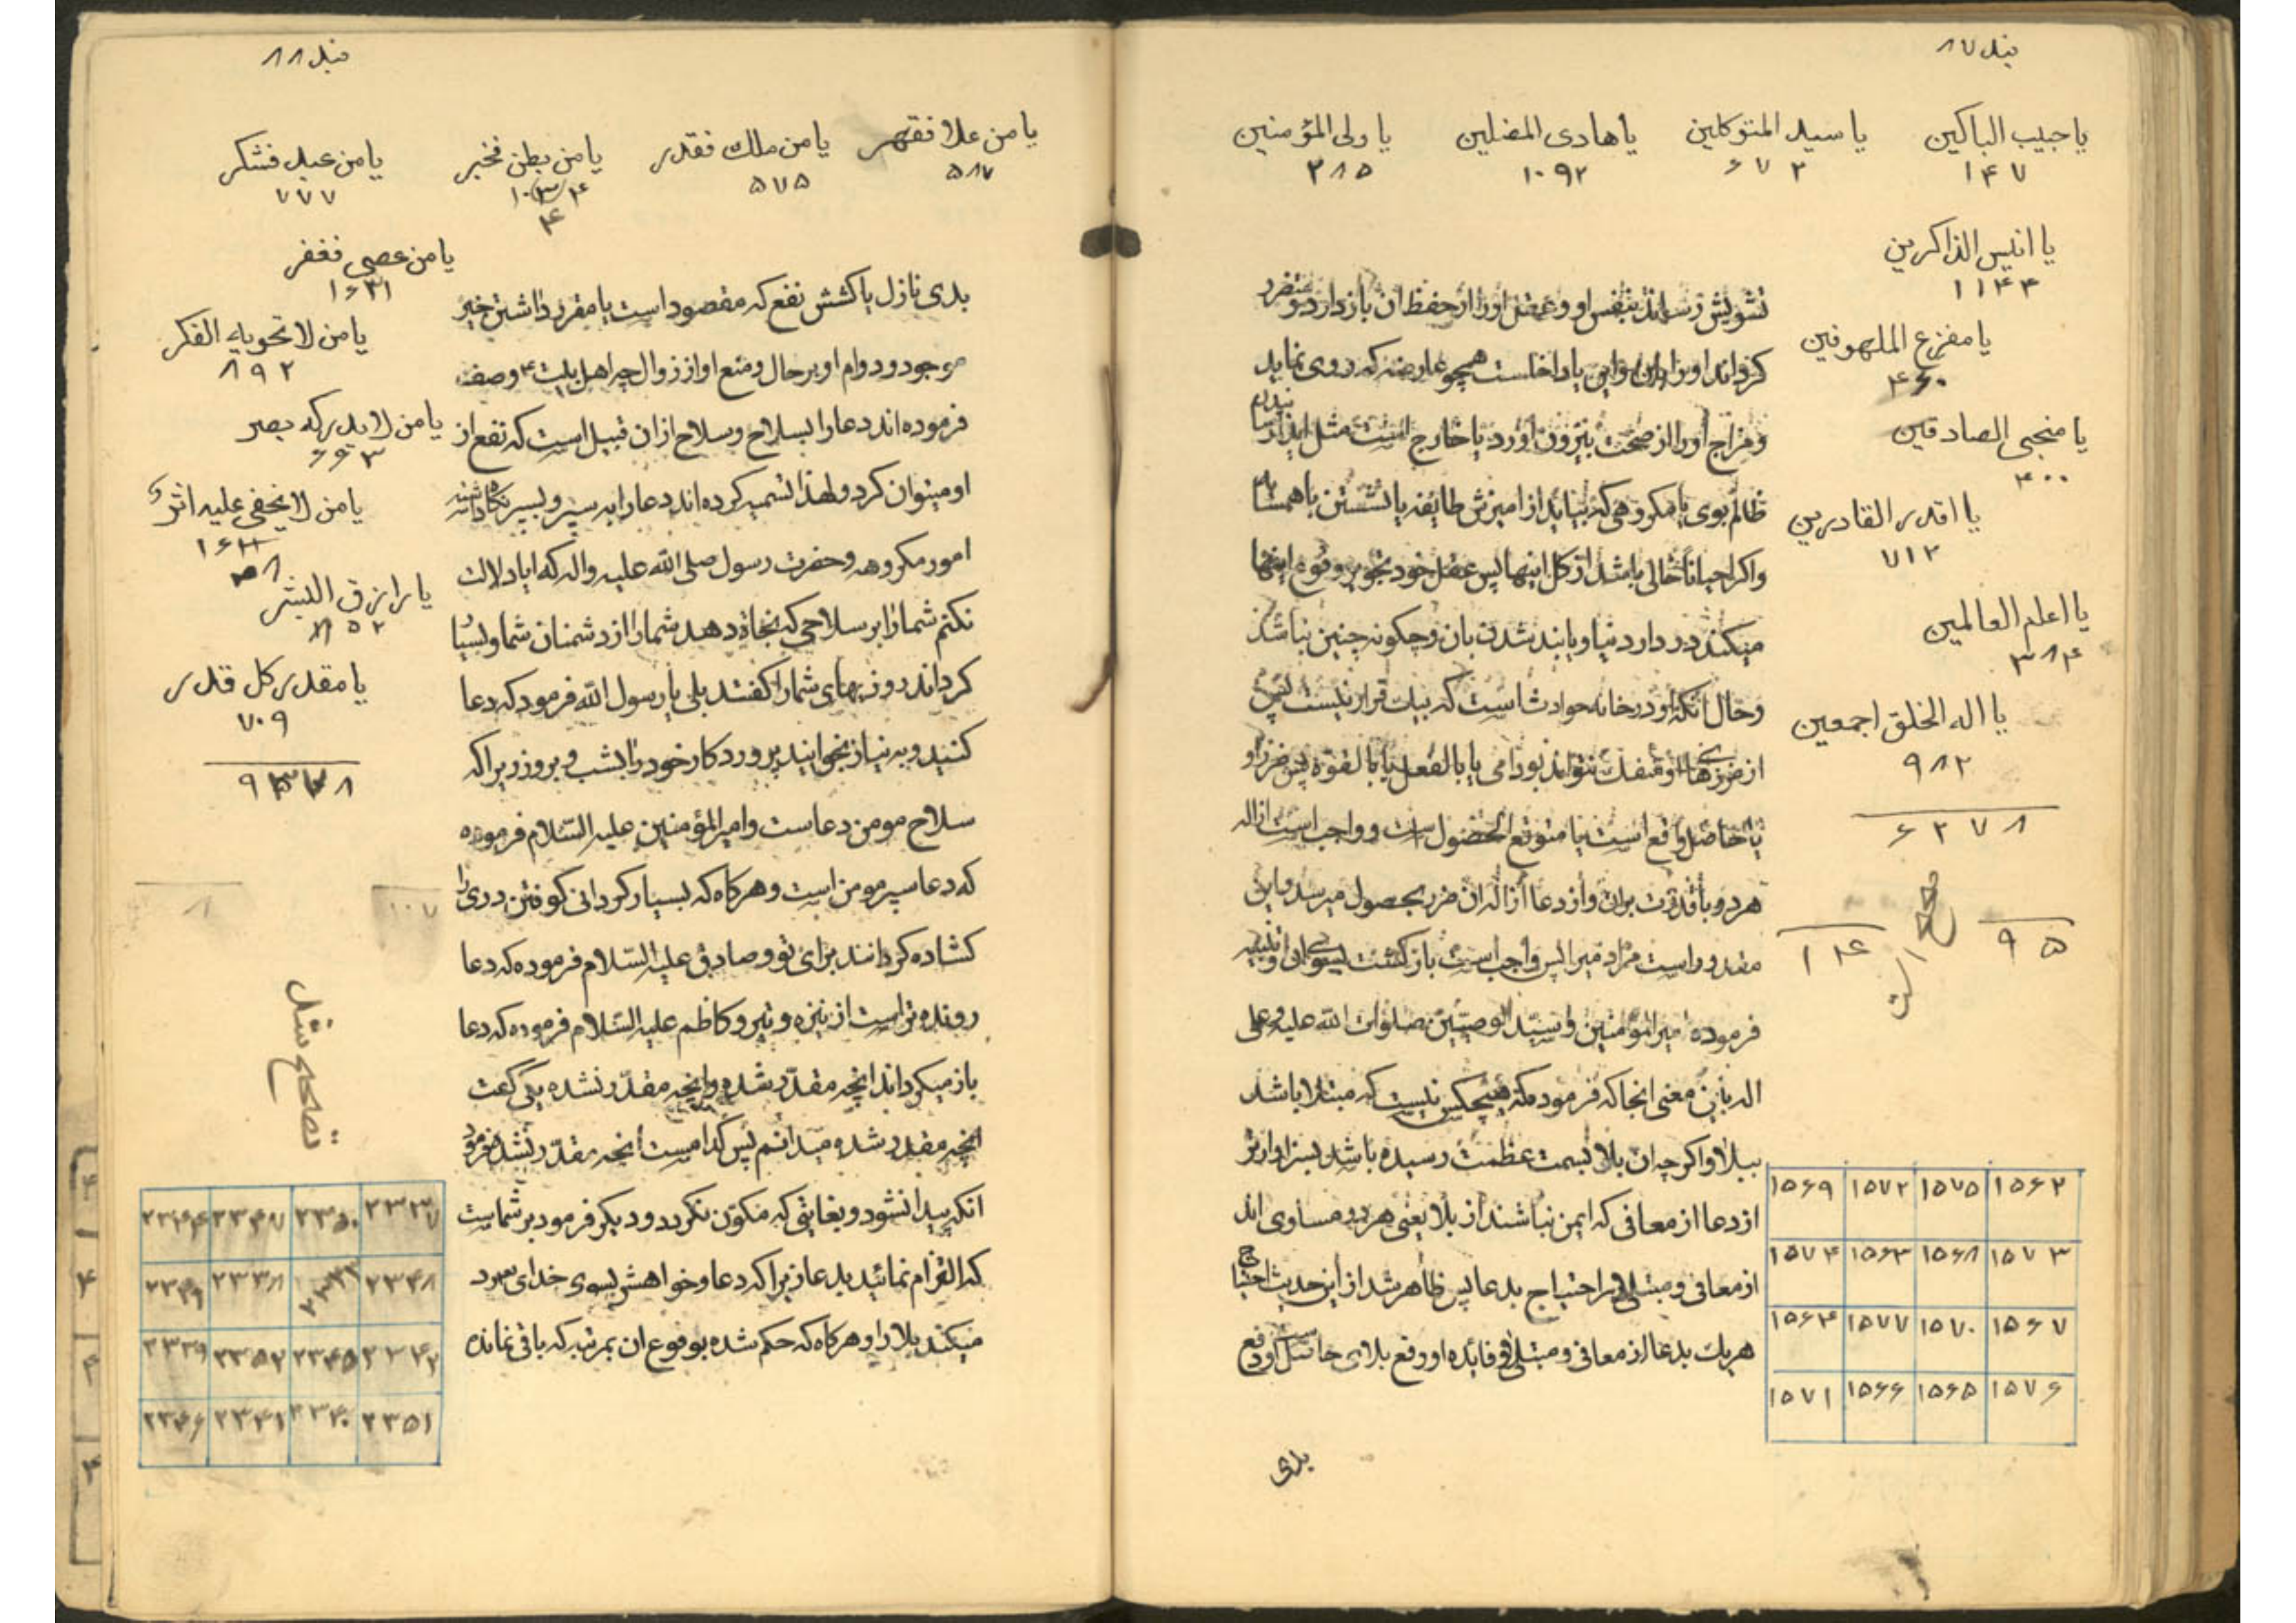 بند ۸۷
یا حبیب الباکین یا سید المتوکلین یا هادی المضلین یا ولی المؤمنین
۱۴۷ ۶۷۲ ۱۰۹۲ ۲۸۵
یا انیس الذاکرین
۱۱۴۳
یا مفزع الملهوفین
۴۶۰
یا منجی الصادقین
۴۰۰
یا اقدر القادرین
۷۱۲
یا اعلم العالمین
۳۸۴
یا اله الخلق اجمعین
۹۸۲
۶۲۷۸
صحیح است
۹۵ ۱۴
تشویش رساند بنفس او و عقل او را از حفظ ان باز دارد و متضرر
کرداند او را و این یا داخلست همچو عارضه که روی نماید
و مزاج او را از صحت بیرون اورد یا خارج است مثل ایذا رسانیدن
ظالم بوی یا مکروهی که بیابد از امیزش طایفه یا نشستن با همسایه
و اکر احیانا خالی باشد از کل اینها پس عقل خود تجویز وقوع اینها
میکند در دار دنیا و پابند شدن بان و چکونه چنین نباشد
و حال انکه او در خانه حوادث است که بیک قرار نیست پس
از ضررهای او منفک نتواند بود ادمی یا بالفعل یا بالقوه پس ضرر او
یا حاصل واقع است یا متوقع الحصول است و واجب است ازاله
هر دو با قدرت بران و از دعا ازاله ان ضرر بحصول میرسد و این
مقدور است مر ادمی را پس واجب است باز کشت بسوی ان و تنبیه
فرموده امیر المؤمنین و سید الوصیین صلوات الله علیه و علی
اله باین معنی انجا که فرموده که هیچکس نیست که مبتلا باشد
ببلا و اکر چه ان بلا بسمت عظمت رسیده باشد بسزاوارتر
از دعا از معافی که ایمن نباشند از بلا یعنی هر دو مساوی اند
از معافی و مبتلی در احتیاج بدعا پس ظاهر شد از این حدیث احتیاج
هر یک بدعا از معافی و مبتلی و فایده او رفع بلای حاصل و دفع
۱۵۶۹ ۱۵۷۲ ۱۵۷۵ ۱۵۶۲
۱۵۷۴ ۱۵۶۳ ۱۵۶۸ ۱۵۷۳
۱۵۶۴ ۱۵۷۷ ۱۵۷۰ ۱۵۶۷
۱۵۷۱ ۱۵۶۶ ۱۵۶۵ ۱۵۷۶
بدی
بند ۸۸
یا من علا فقهر یا من ملك فقدر یا من بطن فخبر یا من عبد فشکر
۵۸۷ ۵۷۵ ۱۰۳۴ ۷۷۷
۴
یا من عصی فغفر
۱۶۳۱
یا من لا تحویه الفکر
۸۹۲
یا من لا یدرکه بصر
۶۶۳
یا من لا یخفی علیه اثر
یا رازق البشر
یا مقدر کل قدر
۷۰۹
تصحیح شد
بدی نازل یا کشش نفع که مقصود است یا مقرر داشتن خیر
موجود و دوام او بر حال و منع او از زوال چه اهل بیت ۴ وصف
فرموده اند دعا را بسلاح و سلاح از ان قبیل است که نفع از
او میتوان کرد و لهذا تسمیه کرده اند دعا را به سپر و بسپر نکاه داشته
امور مکروهه و حضرت رسول صلی الله علیه واله که ایا دلالت
نکنم شما را بر سلاحی که نجاة دهد شما را از دشمنان شما و بسیار
کرداند روزیهای شما را کفتند بلی یا رسول الله فرمود که دعا
کنید و به نیاز بخوانید پروردکار خود را بشب و بروز زیرا که
سلاح مومن دعاست و امیر المؤمنین علیه السّلام فرموده
که دعا سپر مومن است و هرکاه که بسیار کردانی کوفتن دری را
کشاده کردانند برای تو و صادق علیه السّلام فرموده که دعا
رونده تر است از نیزه و تیر و کاظم علیه السّلام فرموده که دعا
باز میکرداند انچه مقدّر شده و انچه مقدّر نشده یکی کفت
انچه مقدر شده میدانم پس کدامست انچه مقدّر نشده فرمود
انکه پیدا نشود و بغایتی که مکوّن نکردد و دیکر فرمود بر شماست
که التزام نمائید بدعا زیرا که دعا و خواهش بسوی خدای
میکند بلا را و هرکاه که حکم شده بوقوع ان بمرتبه که باقی نمانده
۲۳۴۴ ۲۳۴۷ ۲۳۵۰ ۲۳۳۷
۲۳۴۹ ۲۳۳۸ ۲۳۴۳ ۲۳۴۸
۲۳۳۹ ۲۳۵۲ ۲۳۴۵ ۲۳۴۲
۲۳۴۶ ۲۳۴۱ ۲۳۴۰ ۲۳۵۱